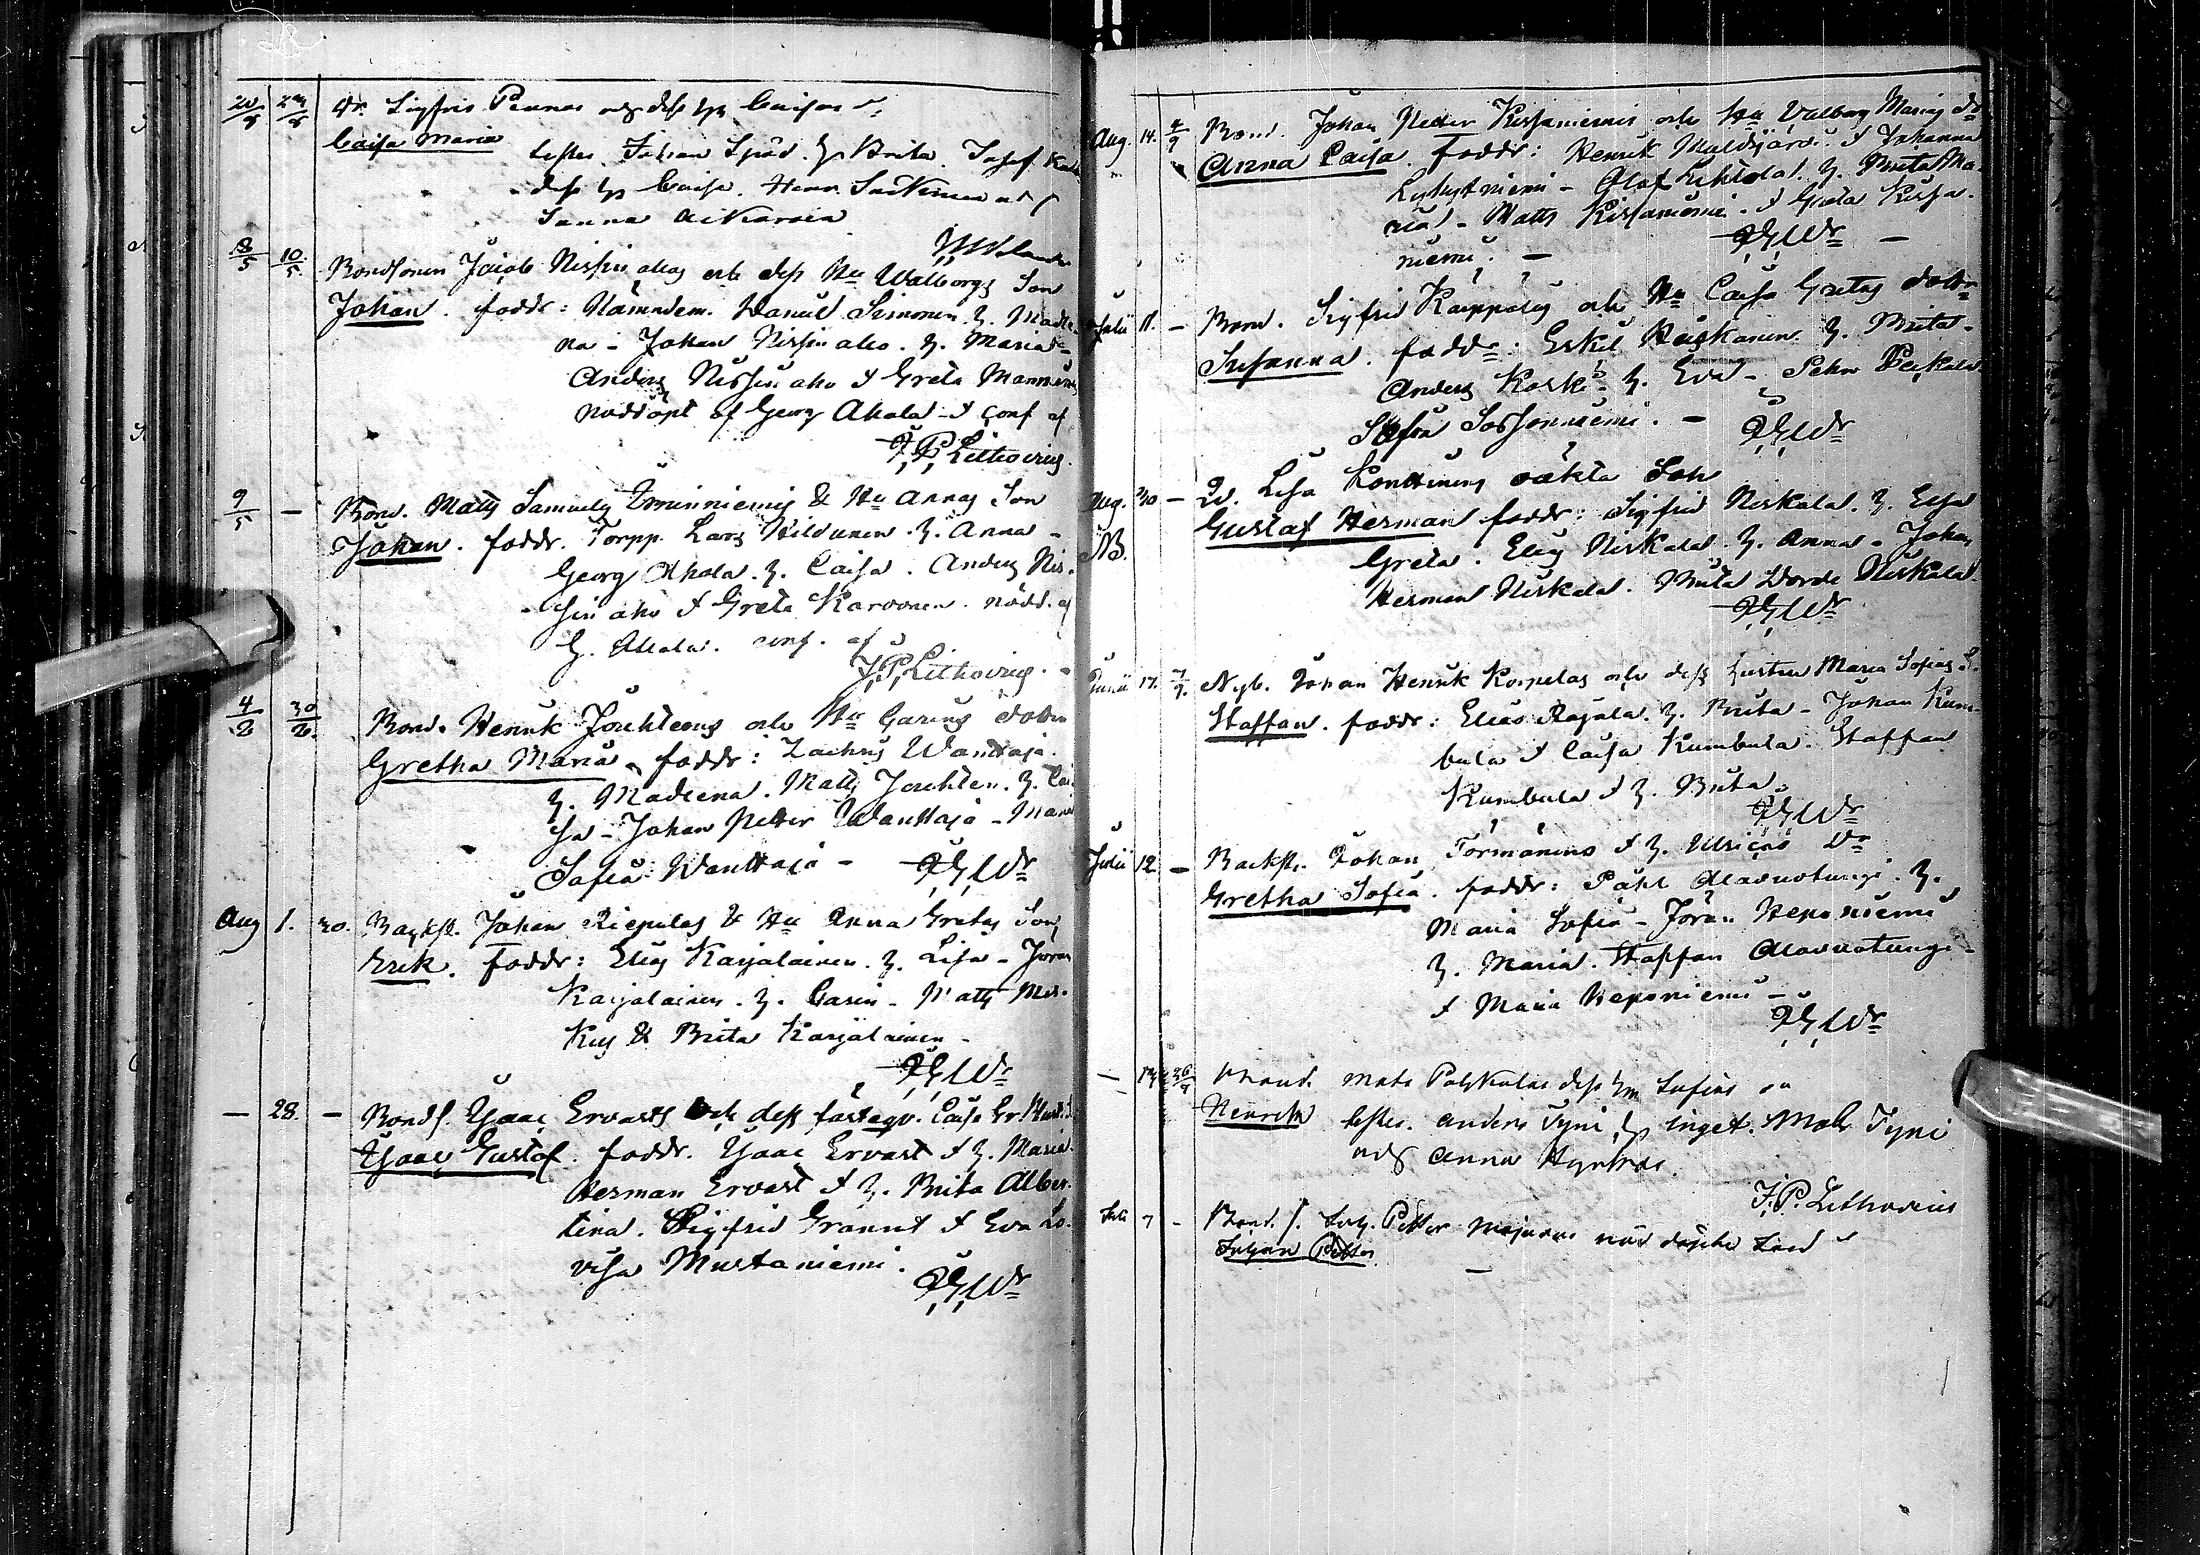 20/4 24/4 Dr. Sigfrid Pennas och dess h. Caisas
Caisa Maria testes Johan Sjöd. h. Brita. Josef
dess h. Caisa. Henr.
Sanna Aikaraia
8/5 10/5 Bondsonen Jacob Nissin ahos och dess Hu Walborgs Son
Johan. faddr: Nämndem. Daniel Simonen h. Madle
na - Johan Nissin aho. h. Maria -
Anders Nissin aho & Greta Manninen
nöddöpt af Georg Ahola & conf af
J. P. Lithovius.
9/5 - Bond. Matts Samuels Emminiemis & Hu Annas Son
Johan. faddr. Torpp. Lars Hildunen. h. Anna -
Georg Ahola. h. Caisa. Anders Nis-
sin aho & Greta Karvonen. nödd. af
G. Ahola. conf. af
J. P. Lithovius.
4/2 30/2 Bond. Henrik Jouhtens och Hu Carins dotter
Gretha Maria faddr: Zachris Wanttaja.
h. Madlena. Matts Jouhten. h. Cai
sa - Johan Petter Wanttaja - Maria
Sofia Wanttaja -
Aug 1. 30. Backst. Johan Riepulas & Hu Anna Gretas Son
Erik. faddr: Elias Karjalainen. h. Lisa - Jöran
Karjalainen. h. Carin - Matts Mar-
kus & Brita Karjalainen -
- 28. - Bonds. Isaac Ervasts och dess fästeqv. Caisa Gr.
Isaac Gustaf. faddr. Isaac Ervast & h. Maria.
Herman Ervast & h. Brita Alber-
tina. Sigfrid Grannt & Eva Lo-
visa Mustaniemi.
Aug. 14. 4/9 Bond. Johan Petter Kissaniemis och Hu Valborg Marias dr
Anna Caisa. faddr: Henrik Maldijärvi & Johanna
Lyhytniemi - Olof Lehtola h. Brita Ma-
ria - Matts Kissaniemi & Greta Kissa-
niemi. -
Julii 11. - Bond. Sigfrid Karppalas och Hu Caisa Gretas dotter
Susanna. faddr: Eskil Heiskanen. h. Brita -
Anders Koski h. Eva - Pehr Peikala
Sofia Sossonniemi. -
Aug. 30 - Qv. Lisa Konttinens oäkta Son
NB. Gustaf Herman faddr: Sigfrid Niskala. h. Elsa
Greta. Elias Niskala. h. Anna - Johan
Herman Niskala. Brita Niskala.
Junii 17. 7/7. Nyb. Johan Henrik Korpelas och dess hustru Maria Sofias S.
Staffan. faddr: Elias Rajala. h. Brita - Johan Kum-
bula & Caisa Kumbula. Staffan
Kumbula & h. Brita.
Julii 12. - Backst. Johan Törmänens & h. Ulricas Dr
Gretha Sofia. faddr: Påhl Alavuotungi. h.
Maria Sofia - Jöran Heponiemi
h. Maria. Staffan Alavuotungi -
& Maria Heponiemi -
- Bond. Mats h. Sofias
Henrik testes. Anders Tyni h. Inget. Mats Tyni
och Anna
J. P. Lithovius
Juli 7 - Bond. s. Joh. Petter
Johan Petter